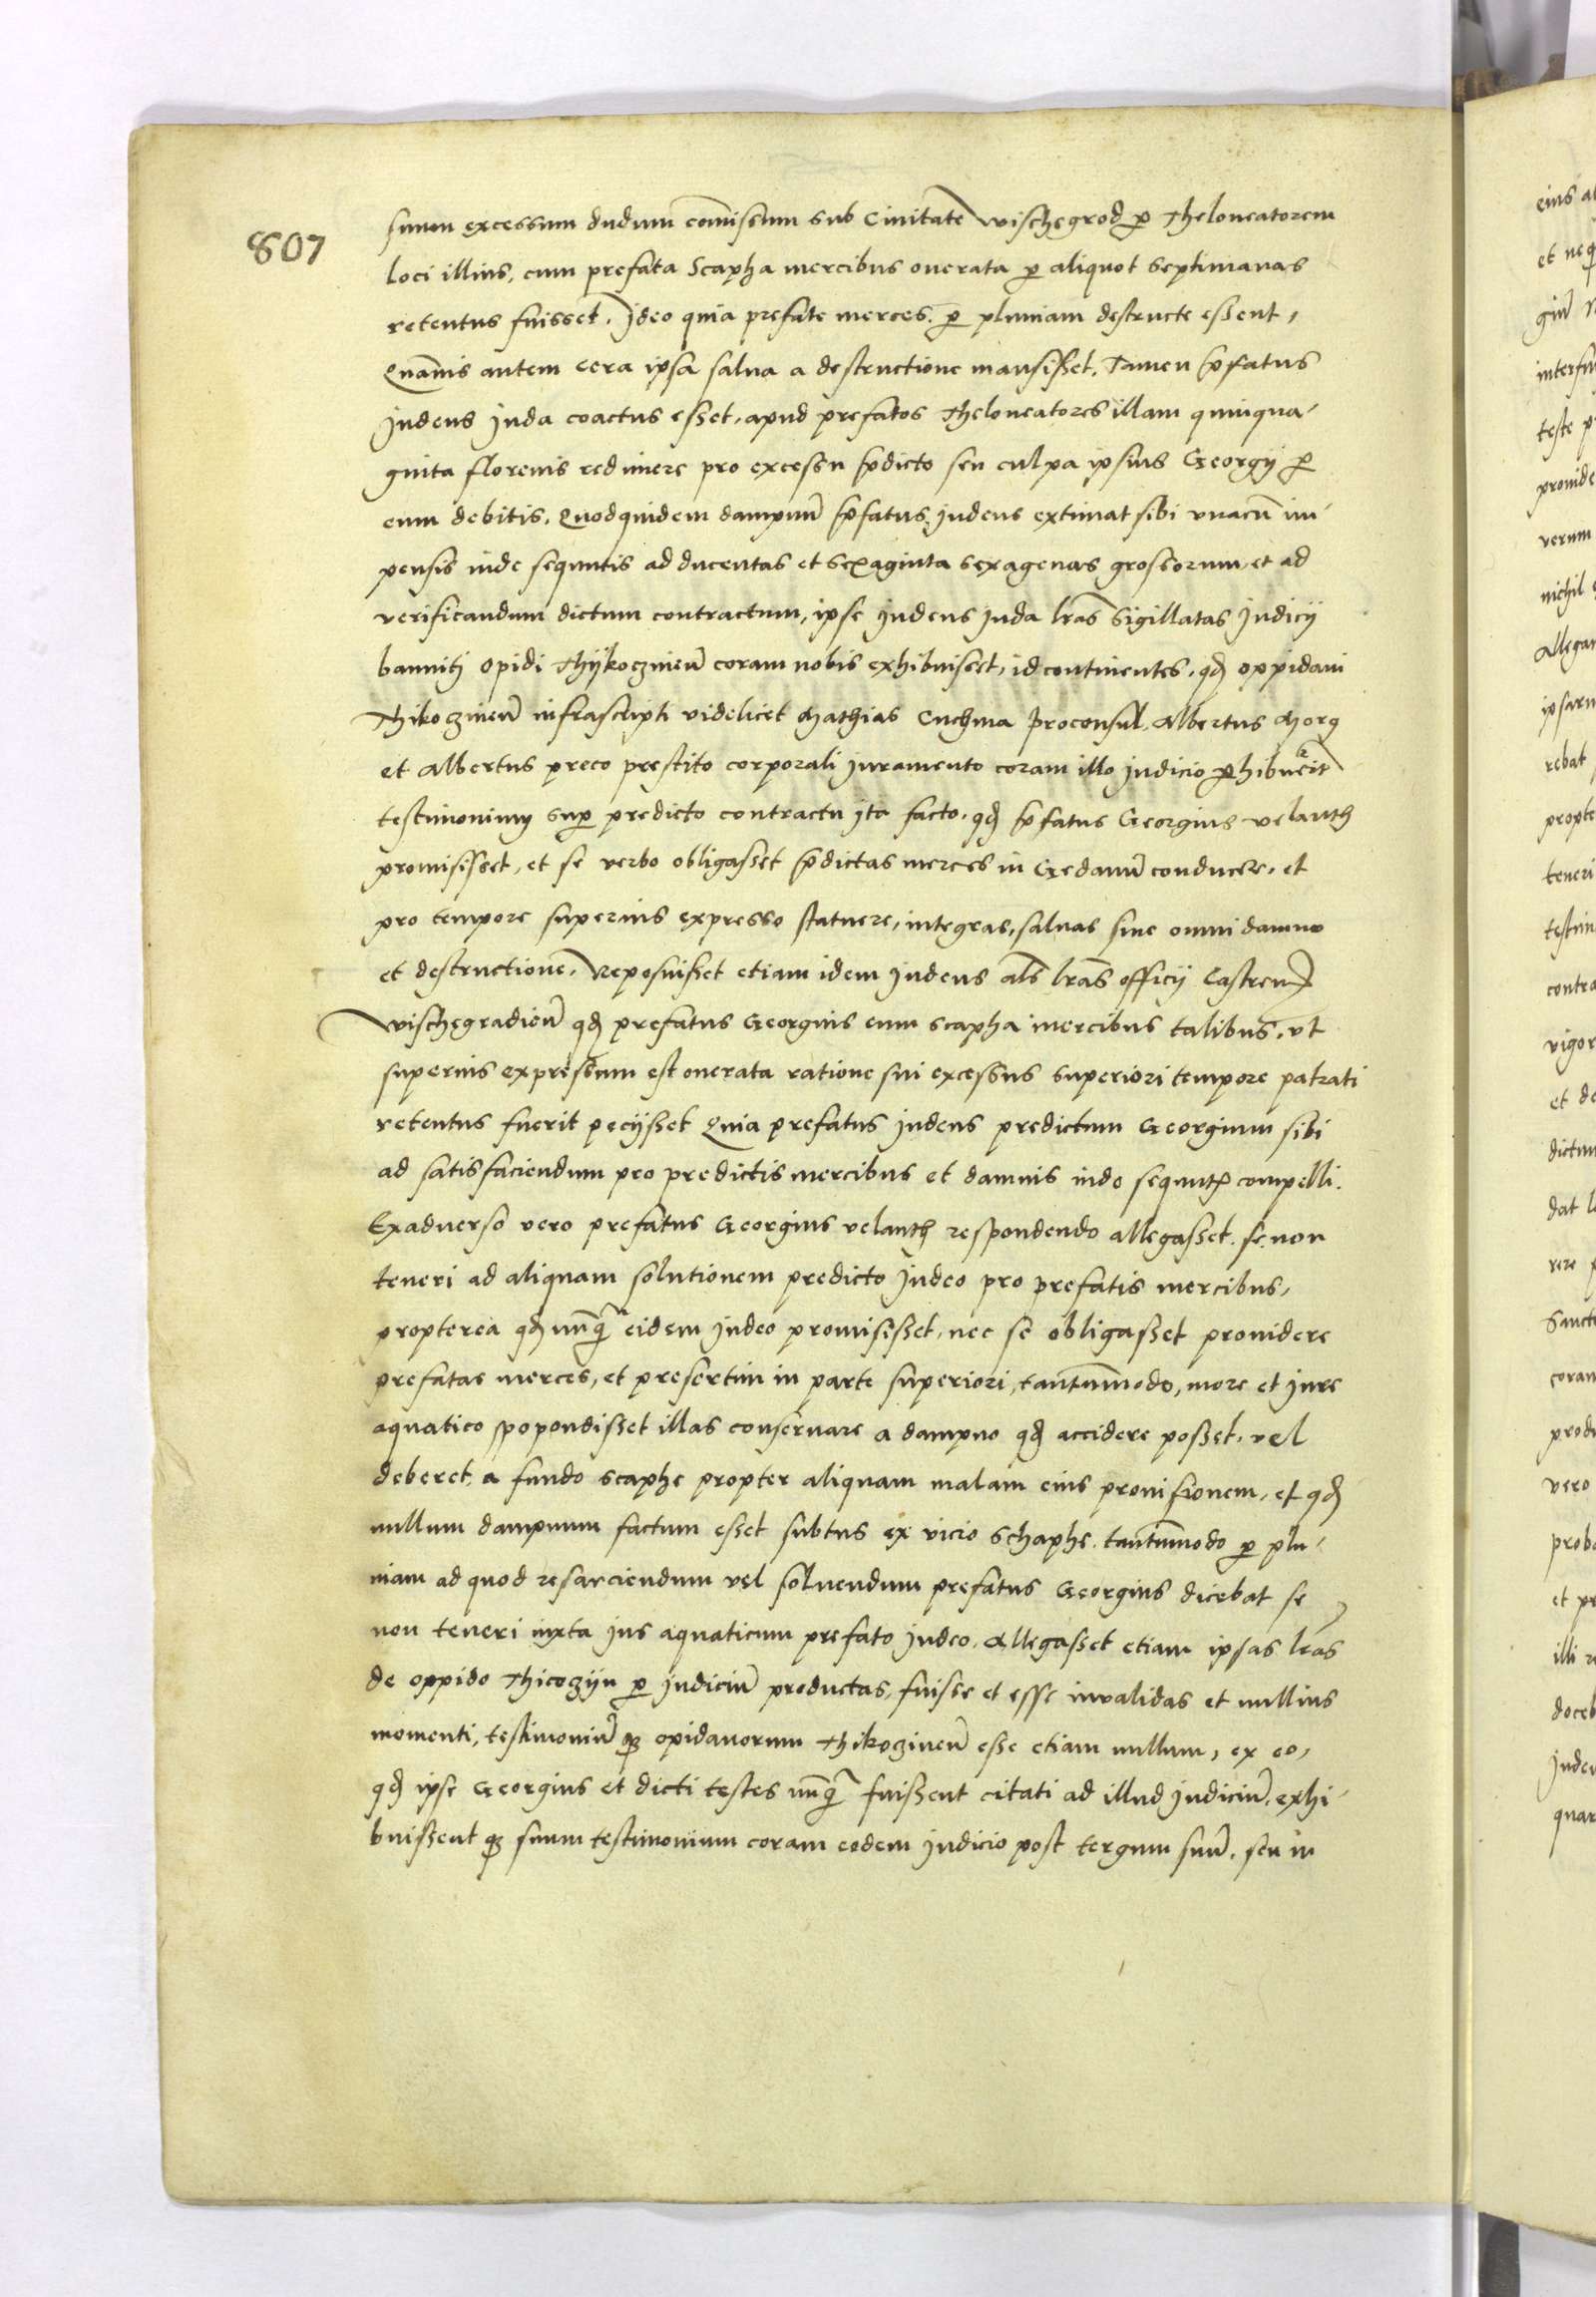 807
suum excessum dudum com̄issum sub Ciuitate Wischegrod ꝑ Theloneatorem
loci illius, cum prefata Scapha mercibus onerata ꝑ aliquot septimanas
retentus fuisset. Jdeo quia prefate merces. ꝑ pluuiam destructe essent,
Quāuis autem cera ipsa salua a destructione mansisset. Tamen p̄fatus
Judeus Juda coactus esset, apud prefatos Theloneatores illam quinqua-
ginta florenis redimere pro excessu p̄dicto seu culpa ipsius Georgij ꝑ
eum debitis. Quodquidem dampnū p̄fatus Judeus extimat sibi vnacū im-
pensis inde sequutis ad ducentas et sexaginta sexagenas grossorum, et ad
verificandum dictum contractum, ipse Judeus Juda lr̄as Sigillatas Judicij
banniti opidi Thÿkoczineñ coram nobis exhibuisset, id continentes, qd̄ oppidani
Thikoczineñ infrascripti videlicet Mathias Cuchma Proconsul, Albertus Morg
et Albertus preco prestito corporali iuramento coram illo Judicio ꝑhibuerit
testimonium sup̱ predicto contractu ita facto, qd̄ p̄fatus Georgius velanth
promisisset, et se verbo obligasset p̄dictas merces in Gedanū conducere, et
pro tempore superius expresso statuere, integras, saluas sine omni damno
et destructione. Reposuisset etiam idem Judeus als̄ lr̄as officij Castreñ
Wischegradieñ qd̄ prefatus Georgius cum scapha mercibus talibus, vt
superius expressum est onerata ratione sui excessus superiori tempore patrati
retentus fuerit pecijsset Quia prefatus Judeus predictum Georgium sibi
ad satisfaciendum pro predictis mercibus et damnis inde sequutꝭ compelli.
Exaduerso vero prefatus Georgius velanth respondendo allegasset. se non
teneri ad aliquam solutionem predicto Judeo pro prefatis mercibus,
propterea qd̄ nūq̄ eidem Judeo promisisset, nec se obligasset prouidere
prefatas merces, et presertim in parte superiori, tantum̄modo, more et Jure
aquatico spopondisset illas conseruare a dampno qd̄ accidere posset, vel
deberet, a fundo scaphe propter aliquam malam eius prouisionem, et qd̄
nullum dampnum factum esset subtus ex vicio schaphe, tantum̄modo ꝑ plu-
uiam ad quod resarciendum vel soluendum prefatus Georgius dicebat se
non teneri iuxta ius aquaticum prefato Judeo. Allegasset etiam ipsas lr̄as
de oppido Thicozijn ꝑ Judiciū productas, fuisse et esse inualidas et nullius
momenti, testimoniū qꝫ opidanorum Thikozineñ esse etiam nullum, ex eo,
qd̄ ipse Georgius et dicti testes nūq̄ fuissent citati ad illud Judiciū, exhi-
buissent qꝫ suum testimonium coram eodem Judicio post tergum suū, seu in